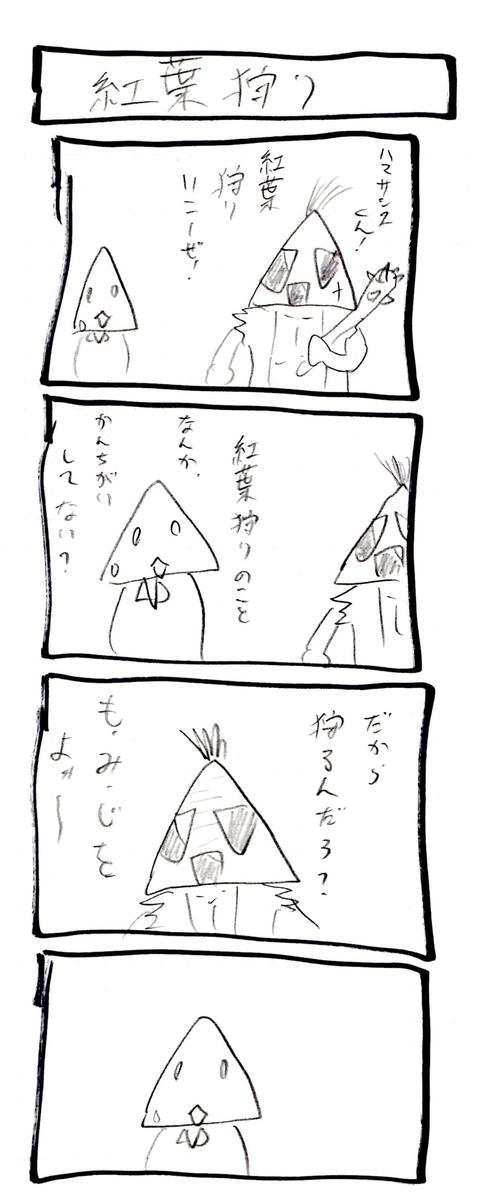 紅葉狩り
ハマサンス
くん！
紅葉
狩り
いこーぜ！
紅葉狩りのこと
なんか、
かんちがい
してない？
だから
狩るんだろ？
も・み・じを
よォ〜